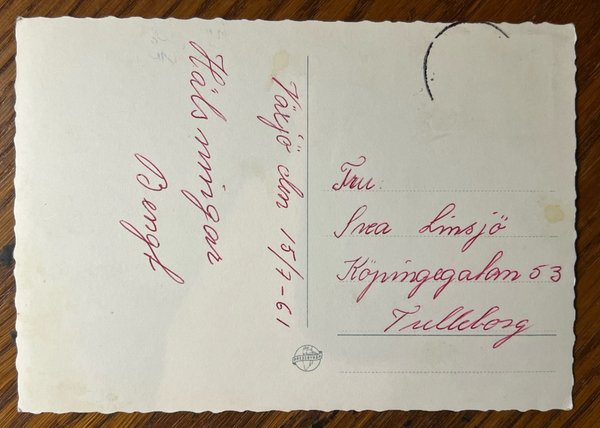 Växjö den 15/7-61
Hälsningar
Bengt
Fru:
Svea Linsjö
Köpingegatan 53
Trelleborg